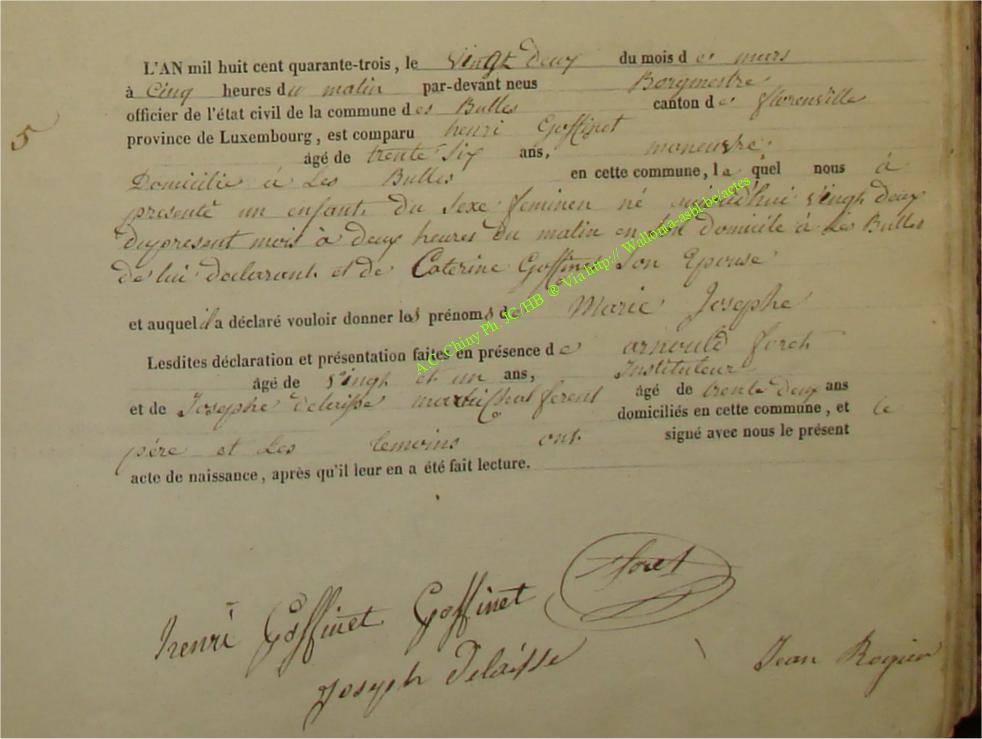 L'AN mil huit cent quarante-trois, le vingt deux du mois de mars
à Cinq heures du matin par-devant nous Borgmestre
officier de l'état civil de la commune des Bulles canton de florenville
5
province de Luxembourg, est comparu henri Goffinet
âgé de trente Six ans, maneuvre
Domicilié à Les Bulles en cette commune, la quel nous à
presenté un enfant du Sexe feminen né aujourdhui vingt deux
du present mois à deux heures du matin en son domicile à Les Bulles
de lui declarant et de Caterine Goffinet Son Epouse
et auquel il a déclaré vouloir donner les prénoms de Marie Josephe
Lesdites déclaration et présentation faites en présence de arnould foret
âgé de vingt et un ans, Instituteur
et de Josephe delaisse marechal ferent âgé de trente deux ans
domiciliés en cette commune, et le
père et Les temoins ont signé avec nous le présent
acte de naissance, après qu'il leur en a été fait lecture.
A.G. Chiny Ph. JC/HB ® Via http:// Wallonia-asbl.be/actes
foret
henri Goffinet Goffinet
Joseph Delaisse
Jean Rogier